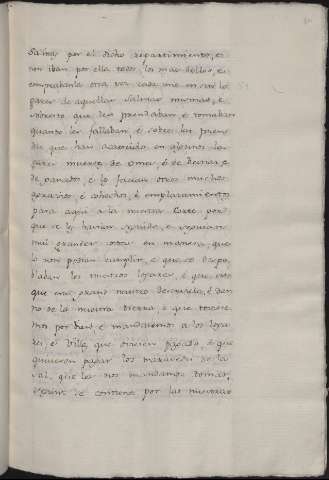 Salinas por el dicho repartimiento, e
non iban por ella todos los mas dellos, e
comprabanla otra vez cada uno en sus lo
gares de aquellas salinas mismas, e
sobresto que los prendaban, e tomaban
quanto les fallaban, e sobre las pren
das que han acaescido en algunos lo
gares muerte de omes, e de bestias, e
de ganados, e les facian otros muchos
agravios, e cohechos, e emplazamientos
para aqui a la nuestra Corte, por
que se les hacian grandes, e
mui grandes costas en manera, que
lo non podian cumplir, e que se despo
blaban los nuestros logares, e que esto
que era grand nuestro deservicio, e dan
no de la nuestra tierra, e que toviese
mos por bien, e mandasemos a los loga
res, e Villas, que oviesen pagado, o que
quisieren pagar los maravedis de la
sal, que les nos mandamos tomar,
segunt se contiene por las nuestras